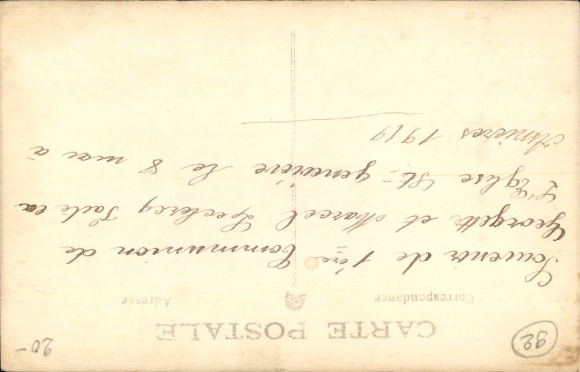 CARTE POSTALE
Correspondance
Adresse
Souvenir de 1ère Communion de
Georgette et Marcel Leclercq Faite en
L'Eglise Ste geneviève le 8 mai à
Asnières 1919
92
20-